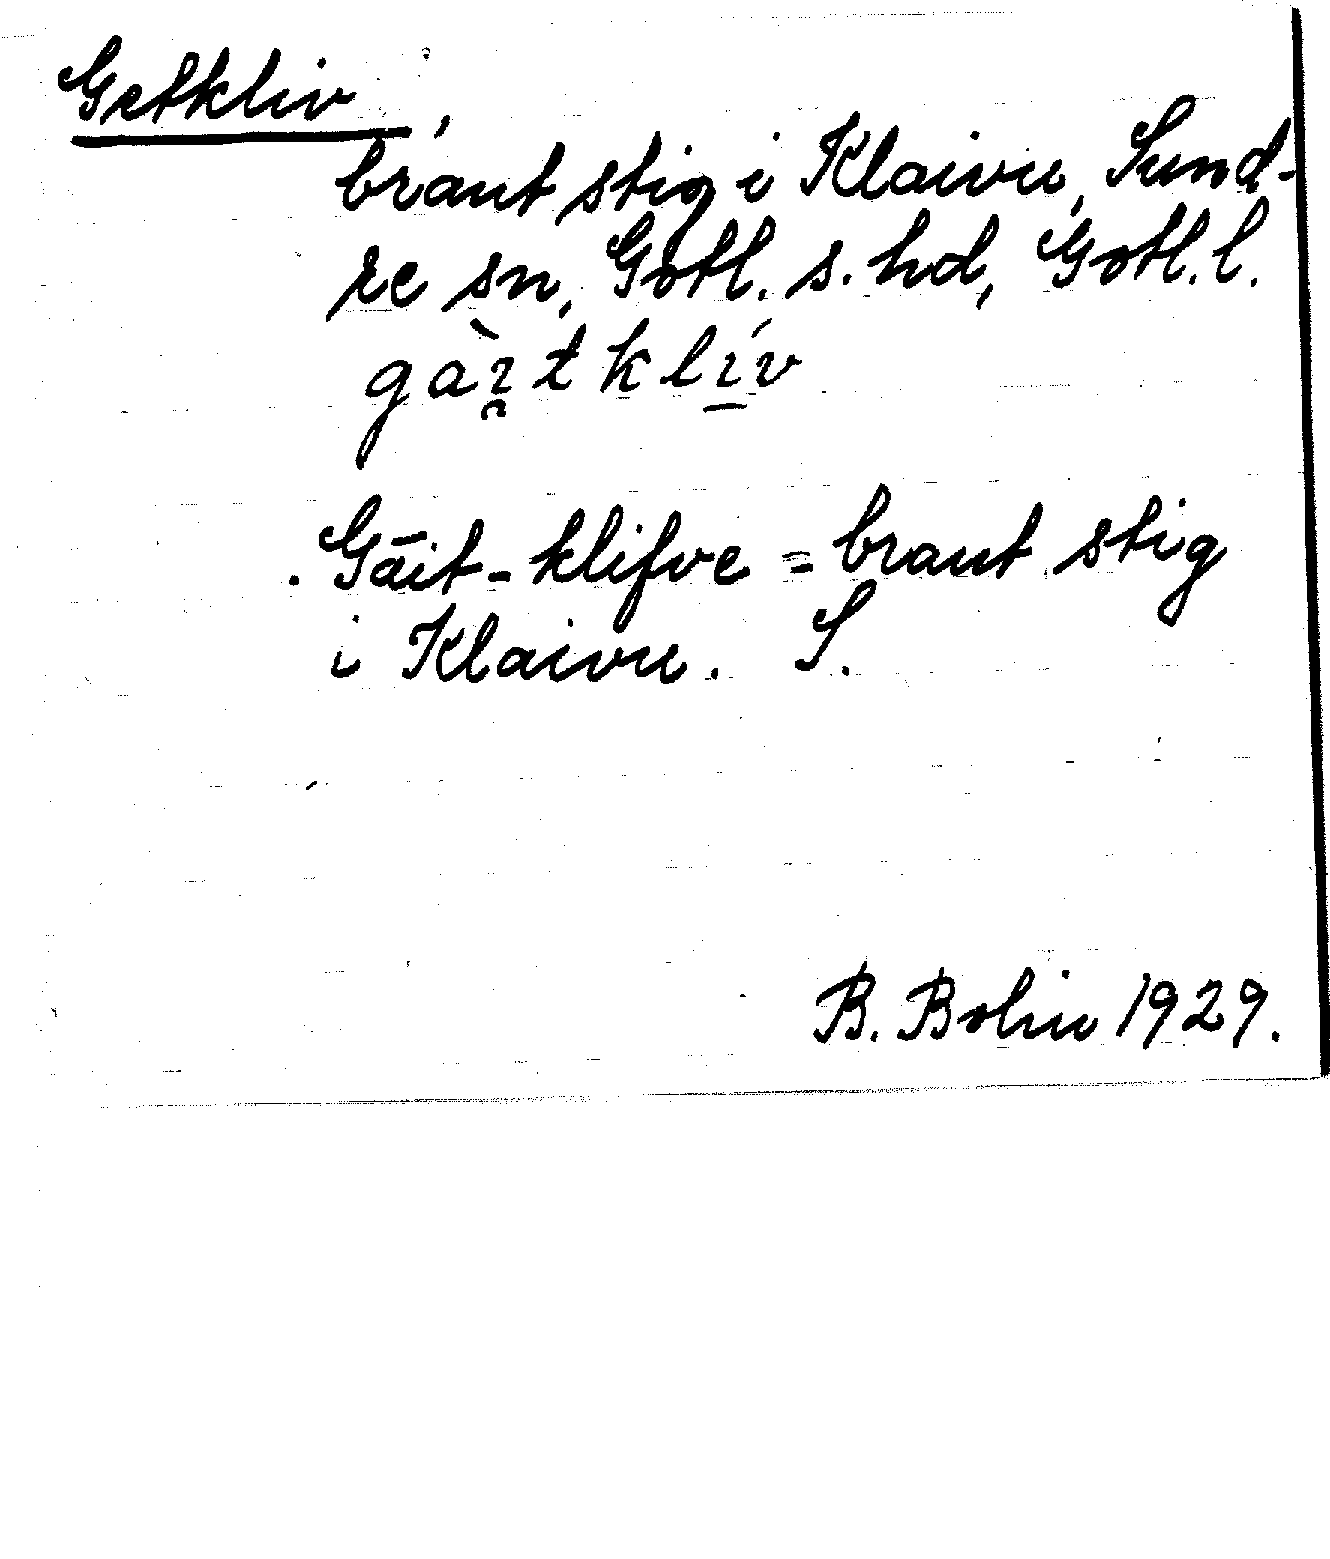 Getkliv,
brant stig i Klaivu, Sund-
re sn, Gotl. s. hd, Gotl. l.
gàı̯tklı̲́v
Gāit-klifve = brant stig
i Klaivu. S.
B. Bolin 1929.